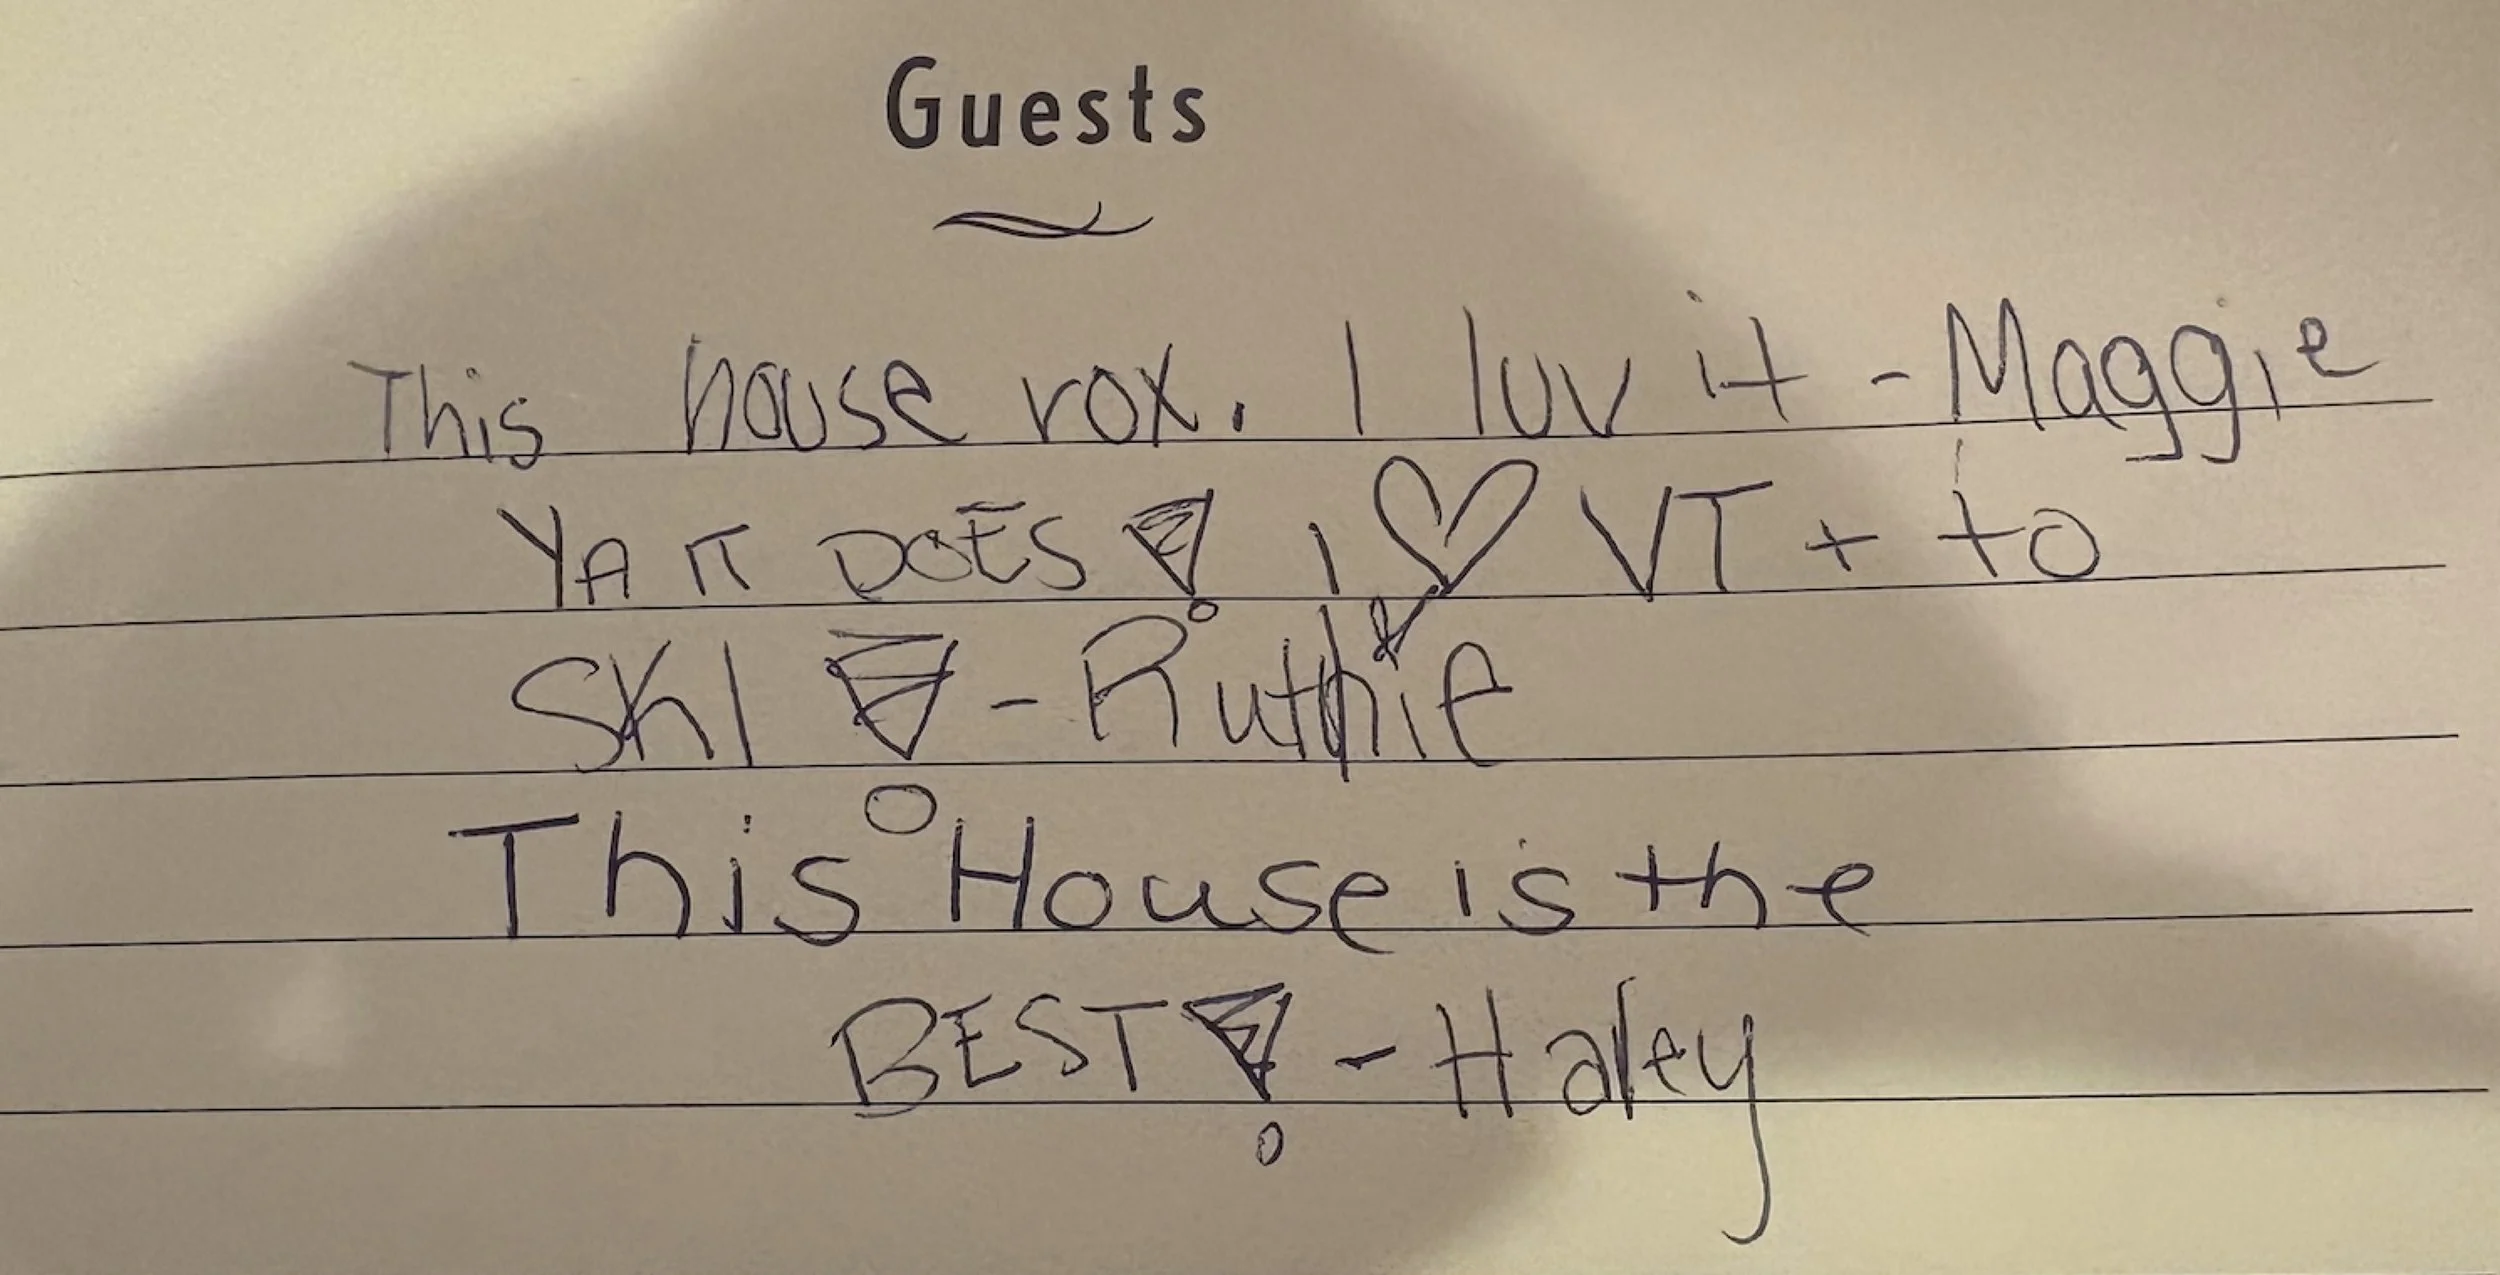 Guests
This house rox. I luv it - Maggie
YA IT DOES! I ♡ VT + to
SKI! - Ruthie
This House is the
BEST! - Haley